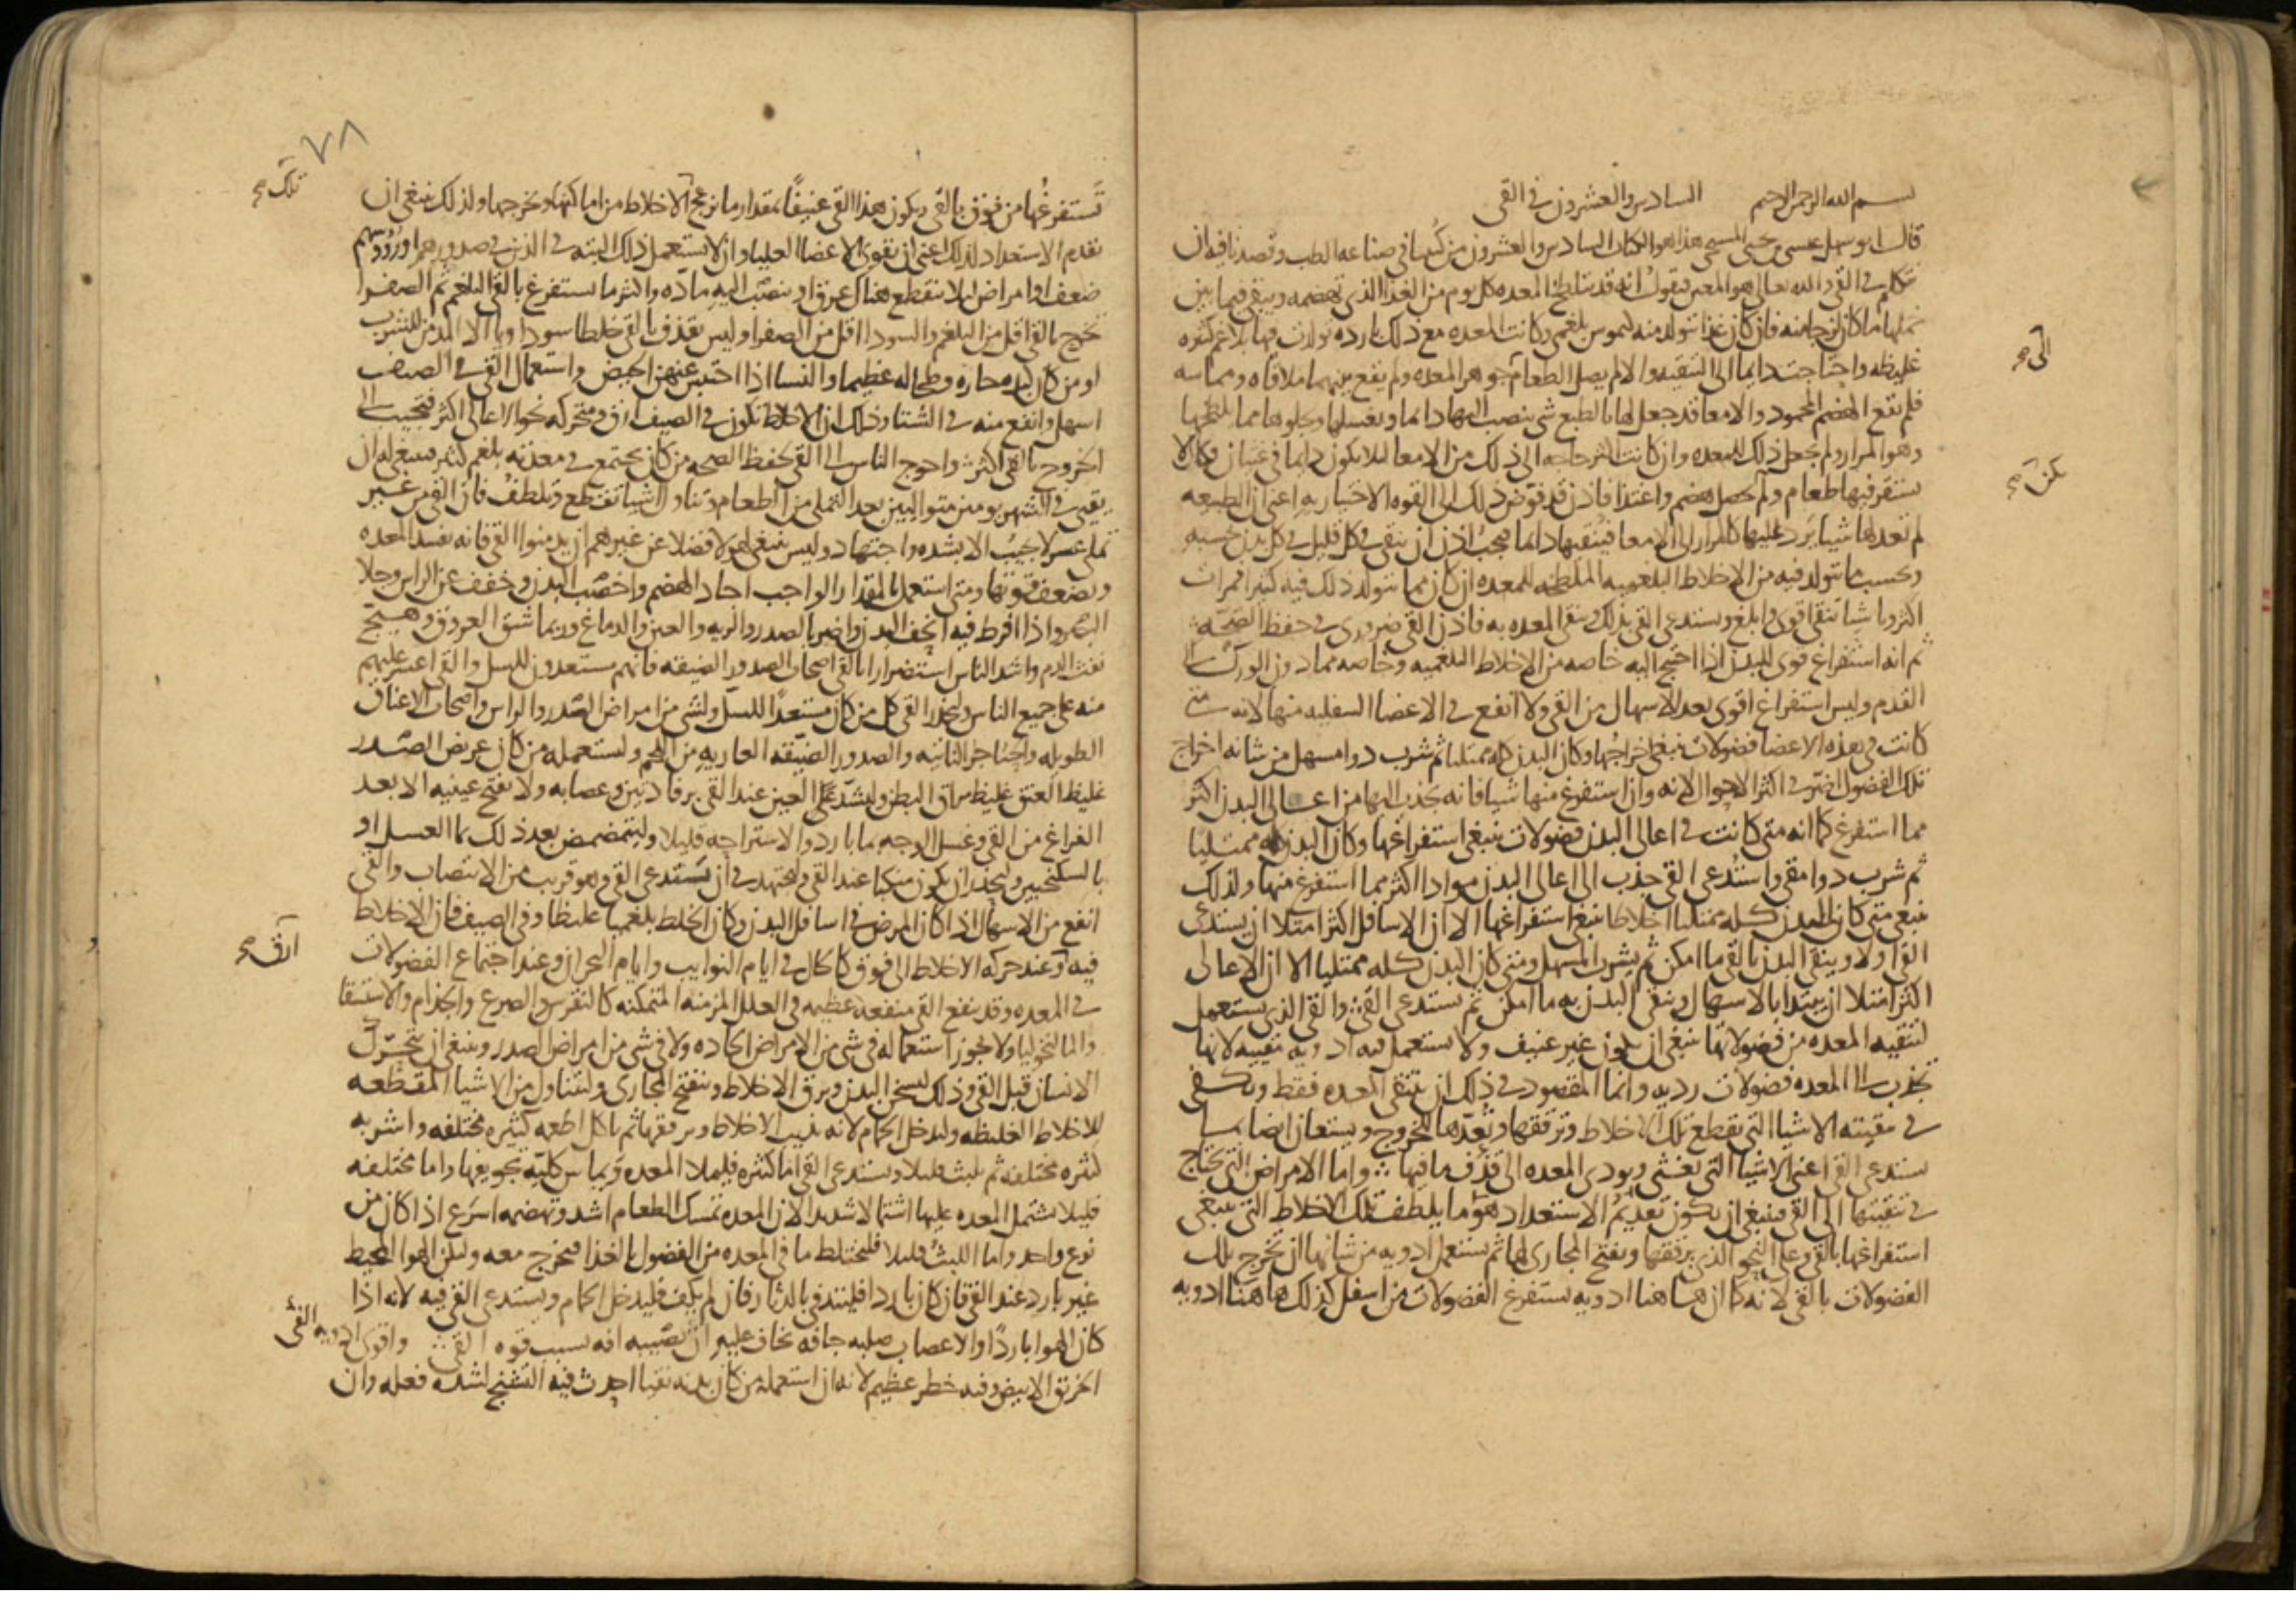 بسم الله الرحمن الرحيم السادس والعشرون في القي
قال ابو سهل عيسى بن يحيى المسيحي هذا هو الكتاب السادس والعشرون من كتبنا في صناعه الطب وقصدنا فيه ان
نتكلم في القي والله تعالى هو المعين فنقول انه قد يتلطخ المعده كل يوم من الغذا الذي تهضمه ويبقى فيما بين
خملها ما كان لزجا منه فان كان غذا يتولد منه كيموس بلغمي وكانت المعده مع ذلك بارده تولدت فيها بلاغم كثيره
غليظه واحتاجت دايما الى التنقيه والا لم يصل الطعام الى جوهر المعده ولم يقع بينهما ملاقاه ومماسه
فلم يقع الهضم المحمود والامعا قد جعل لها بالطبع شي ينصب اليها دايما ويغسلها ويجلوها مما يلطخها
وهو المرار ولم يجعل ذلك للمعده وان كانت اكثر حاجه الى ذلك من الامعا ليلا يكون دايما في غثيان فكان لا
يستقر فيها طعام ولم يحصل هضم واغتذا فاذن قد فوض ذلك الى القوه الاختياريه اعني ان الطبيعه
لم تعد لها شيا يرد عليها كالمرار الى الامعا فينقيها دايما فيجب اذن ان ينقى في كل قليل في كل بدن بحسبه
وبحسب ما يتولد فيه من الاخلاط البلغميه الملطخه للمعده ان كان مما يتولد ذلك فيه كثيرا فمرات
اكثر وباشيا تنقي اقوى وابلغ ويستدعى القي بذلك وتنقى المعده به فاذن القي ضروري في حفظ الصحه
ثم انه استفراغ قوي للبدن اذا احتيج اليه خاصه من الاخلاط البلغميه وخاصه مما دون الورك الى
القدم وليس استفراغ اقوى بعد الاسهال من القي ولا انفع في الاعضا السفليه منها لانه متى
كانت في هذه الاعضا فضولات ينبغي اخراجها وكان البدن كله ممتليا ثم شرب دوا مسهل من شانه اخراج
تلك الفضول اضر في اكثر الاحوال لانه وان استفرغ منها شيا فانه يجذب اليها من اعالي البدن اكثر
مما استفرغ كما انه متى كانت في اعالي البدن فضولات ينبغي استفراغها وكان البدن كله ممتليا
ثم شرب دوا مقي واستدعي القي جذب الى اعالي البدن موادا اكثر مما استفرغ منها ولذلك
ينبغي متى كان البدن كله ممتليا اخلاطا ينبغي استفراغها الا ان الاسافل اكثر امتلا ان يبتدى
القي اولا وينقى البدن بالقي ما امكن ثم يشرب المسهل ومتى كان البدن كله ممتليا الا ان الاعالي
اكثر امتلا ان يبتدا بالاسهال وينقى البدن به ما امكن ثم يستدعى القي والقي الذي يستعمل
لتنقيه المعده من فضولاتها ينبغي ان يكون غير عنيف ولا يستعمل فيه ادويه مقييه لانها
تجذب الى المعده فضولات رديه وانما المقصود في ذلك ان تنقى المعده فقط ويكفي
في تنقيته الاشيا التي تقطع تلك الاخلاط وترققها وتعدها للخروج ويستعان ايضا بما
يستدعي القي اعني الاشيا التي تغثي ويودي المعده الى قذف ما فيها واما الامراض التي يحتاج
في تنقيتها الى القي فينبغي ان يكون تقديم الاستعداد هو ما يلطف تلك الاخلاط التي ينبغي
استفراغها بالقي وعلى النحو الذي يرققها ويفتح المجاري لها ثم يستعمل ادويه من شانها ان تخرج تلك
الفضولات بالقي لانه كما ان هاهنا ادويه تستفرغ الفضولات من اسفل كذلك هاهنا ادويه
الى صح
يكن صح
٧٨
تلك صح
تستفرغها من فوق بالقي ويكون هذا القي عنيفا بمقدار ما يزعج الاخلاط من اماكنها ويخرجها ولذلك ينبغي ان
يقدم الاستعداد لذلك اعني ان يقوى الاعضا العليا وان لا يستعمل ذلك البته في الذين في صدورهم او رؤوسهم
ضعف او امراض ليلا ينقطع هناك عرق او ينصب اليه ماده واكثر ما يستفرغ بالقي البلغم ثم الصفرا
تخرج بالقي اقل من البلغم والسودا اقل من الصفرا وليس يقذف بالقي خلطا سوداويا الا المدمن للشرب
او من كان كبده حاره وطحاله عظيما والنسا اذا احتبس عنهن الحيض واستعمال القي في الصيف
اسهل وانفع منه في الشتا وذلك ان الاخلاط تكون في الصيف ارق ومتحركه نحو الاعالي اكثر فتجيب الى
الخروج بالقي اكثر واحوج الناس الى القي لحفظ الصحه من كان يجتمع في معدته بلغم كثير فينبغي له ان
يتقيى في الشهر يومين متواليين بعد التملي من الطعام وتناول اشيا تقطع وتلطف فان القي من غير
تملي عسر لا يجيب الا بشده واجتهاد وليس ينبغي لهولا فضلا عن غيرهم ان يدمنوا القي فانه يفسد المعده
ويضعف قوتها ومتى استعمل بالمقدار الواجب اجاد الهضم واخصب البدن وخفف عن الراس وجلا
البصر واذا افرط فيه انحف البدن واضر بالصدر والريه والعين والدماغ وربما شق العروق وهيج
نفث الدم واشد الناس استضرارا بالقي اصحاب الصدور الضيقه فانهم مستعدون للسل والقي اعسر عليهم
منه على جميع الناس وليحذر القي كل من كان مستعدا للسل ولشي من امراض الصدر والراس واصحاب الاعناق
الطويله والحناجر الناتيه والصدور الضيقه العاريه من اللحم وليستعمله من كان عريض الصدر
غليظ العنق غليظ مراق البطن وليشد على العين عند القي برفادتين وعصابه ولا يفتح عينيه الا بعد
الفراغ من القي وغسل الوجه بما بارد والاستراحه قليلا وليتمضمض بعد ذلك بما العسل او
بالسكنجبين وليحذر ان يكون منكبا عند القي وليجتهد في ان يستدعي القي وهو قريب من الانتصاب والقي
انفع من الاسهال اذا كان المرض في اسافل البدن وكان الخلط بلغميا غليظا وفي الصيف فان الاخلاط
فيه وعند حركه الاخلاط الى فوق كالحال في ايام النوايب وايام البحران وعند اجتماع الفضولات
في المعده وقد ينفع القي منفعه عظيمه في العلل المزمنه المتمكنه كالنقرس والصرع والجذام والاستسقا
والمالنخوليا ولا يجوز استعماله في شي من الامراض الحاده ولا في شي من امراض الصدر وينبغي ان يتحرك
الانسان قبل القي وذلك ليسخن البدن ويرق الاخلاط وتنفتح المجاري وليتناول من الاشيا المقطعه
للاخلاط الغليظه وليدخل الحمام لانه يذيب الاخلاط ويرققها ثم ياكل اطعمه كثيره مختلفه واشربه
كثيره مختلفه ثم يلبث قليلا ويستدعي القي اما كثره فليملا المعده ويماس كليه تجويفها واما مختلفه
فليلا تشتمل المعده عليها اشتمالا شديدا لان المعده تمسك الطعام اشد وتهضمه اسرع اذا كان من
نوع واحد واما اللبث قليلا فليختلط ما في المعده من الفضول بالغذا فيخرج معه وليكن الهوا المحيط
غير بارد عند القي فان كان باردا فليتدفى بالدثار فان لم يكف فليدخل الحمام ويستدعي القي فيه لانه اذا
كان الهوا باردا والاعصاب صلبه جافه يخاف عليه ان تصيبه افه بسبب قوه القي واقوى ادويه القي
الخربق الابيض وفيه خطر عظيم لانه ان استعمله من كان بدنه نقيا احدث فيه التشنج لشده فعله وان
ارق صح